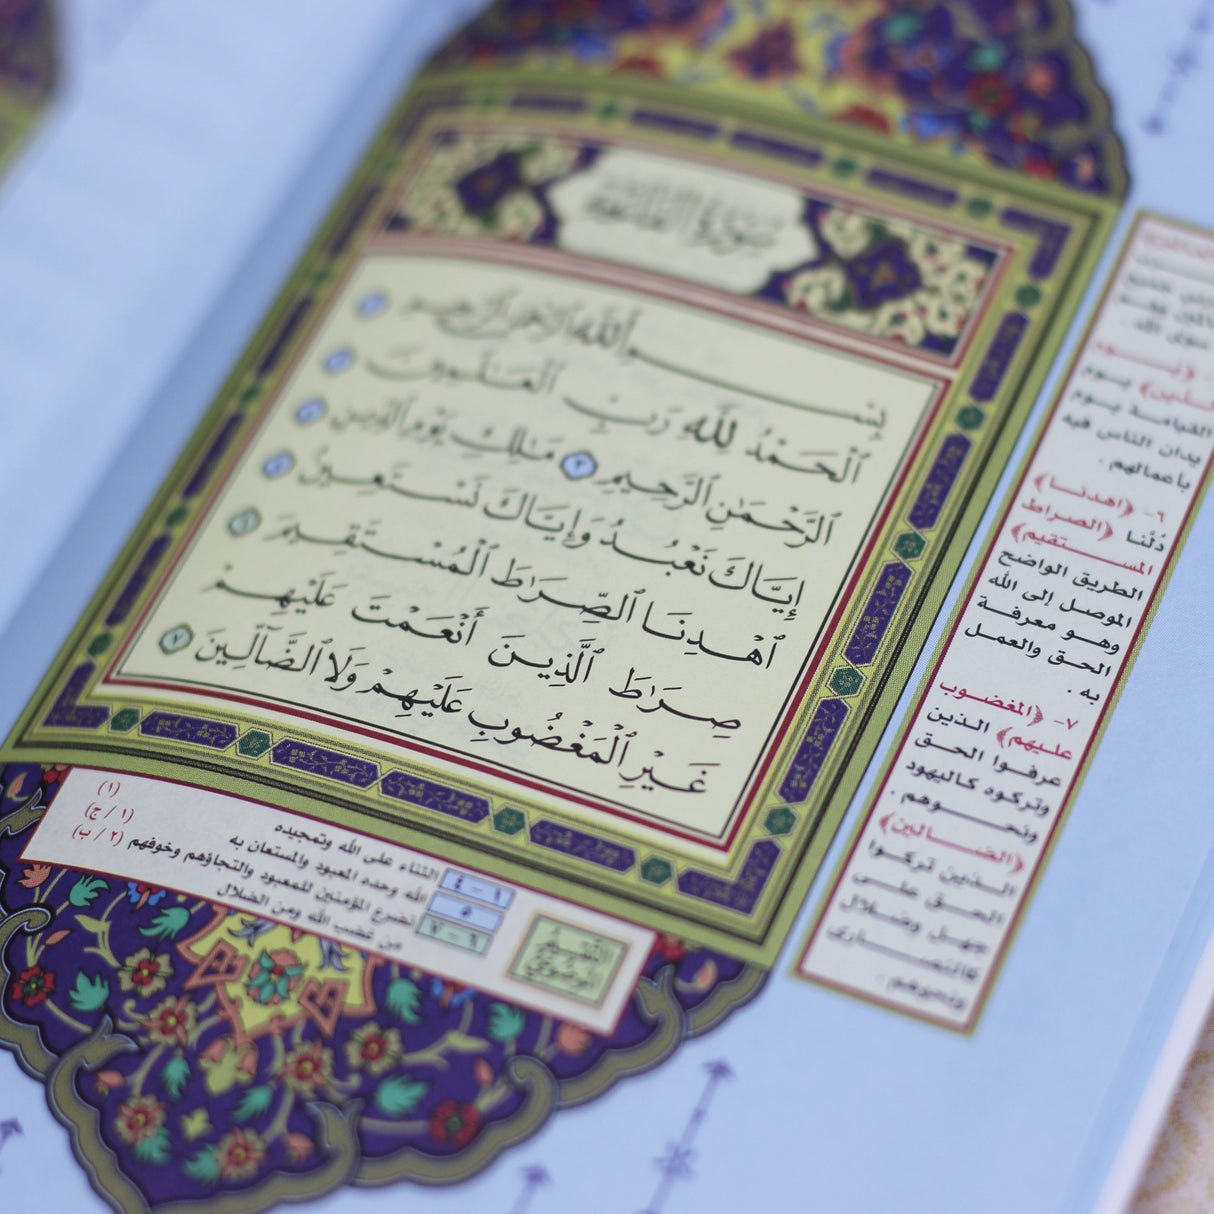 سُورَةُ الفَاتِحَةِ
بِسْمِ ٱللَّهِ ٱلرَّحْمَٰنِ ٱلرَّحِيمِ ١
ٱلْحَمْدُ لِلَّهِ رَبِّ ٱلْعَٰلَمِينَ ٢
ٱلرَّحْمَٰنِ ٱلرَّحِيمِ ٣ مَٰلِكِ يَوْمِ ٱلدِّينِ ٤
إِيَّاكَ نَعْبُدُ وَإِيَّاكَ نَسْتَعِينُ ٥
ٱهْدِنَا ٱلصِّرَٰطَ ٱلْمُسْتَقِيمَ ٦
صِرَٰطَ ٱلَّذِينَ أَنْعَمْتَ عَلَيْهِمْ
غَيْرِ ٱلْمَغْضُوبِ عَلَيْهِمْ وَلَا ٱلضَّآلِّينَ ٧
سوى الله .
الدين﴾ يـوم
القيامة يوم
يدان الناس فيه
بأعمالهم .
٦- ﴿اهدنـا﴾
دُلَّنا ﴿الصراط
المستقيم﴾
الطريق الواضح
الموصل إلى الله
وهو معرفة
الحق والعمل
به .
٧- ﴿المغضوب
عليهم﴾ الذين
عرفوا الحق
وتركوه كاليهود
ونحوهم .
﴿الضالين﴾
الذين تركوا
الحق على
جهل وضلال
كالنصارى
ونحوهم .
التقسيم
الموضوعي
١ – ٤ الثناء على الله وتمجيده (١)
٥ الله وحده المعبود والمستعان به (١ / ج)
٦ – ٧ تضرع المؤمنين للمعبود والتجاؤهم وخوفهم (٢ / ب)
من غضب الله ومن الضلال